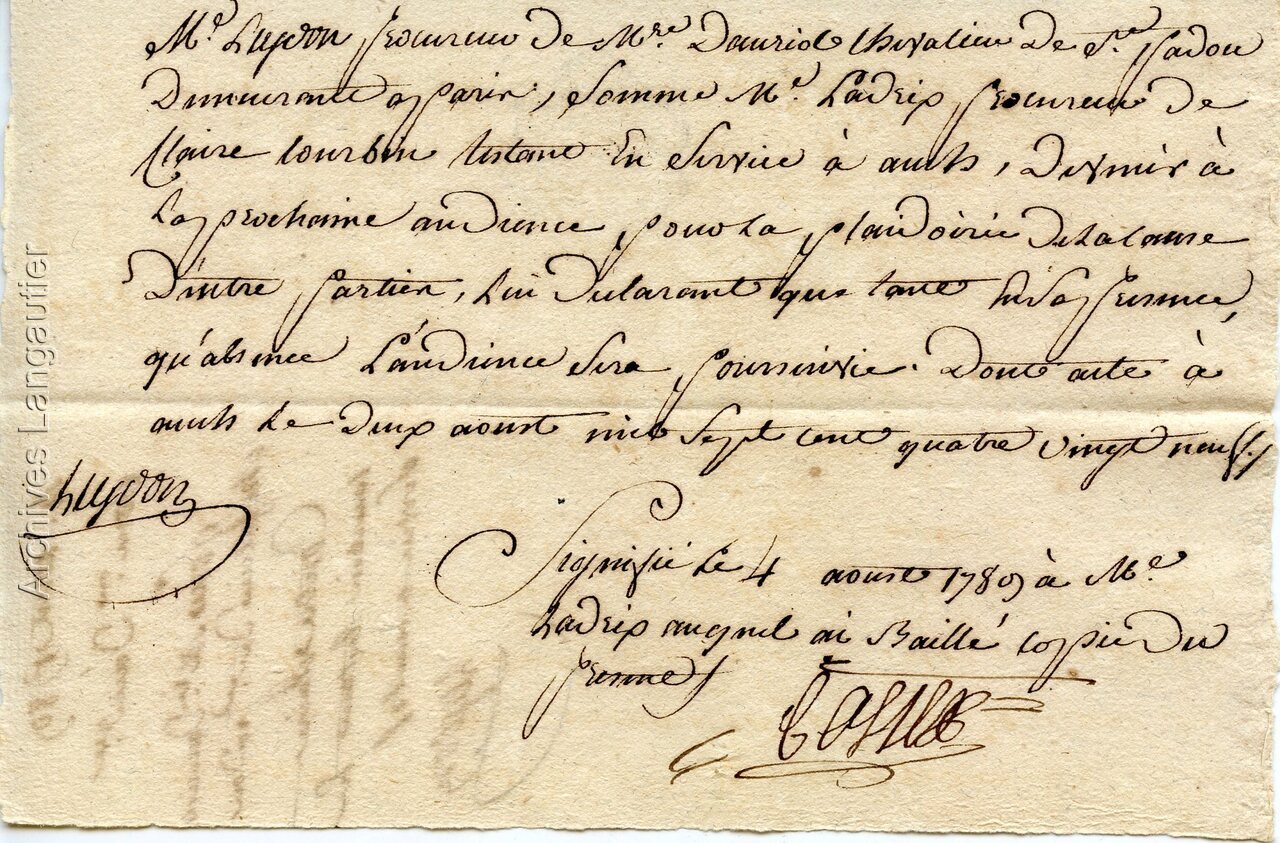 Me. Luydon procureur de Mre. Dauriol chevalier de St. padou
Demeurant a paris, somme Me. Ladeix procureur de
Claire Courbin restant En service à auch, De venir à
La prochaine audience pour La plaidoirie De la cause
D'entre parties, Lui Declarant que tant En Sa presence,
qu'absence L'audience Sera poursuivie. Dont acte à
auch Le Deux aoust mil Sept cent quatre vingt neuf./
Luydon
Signifié Le 4 aoust 1789 à Me.
Ladeix auquel ai Baillé copie Du
present/
Archives Langautier